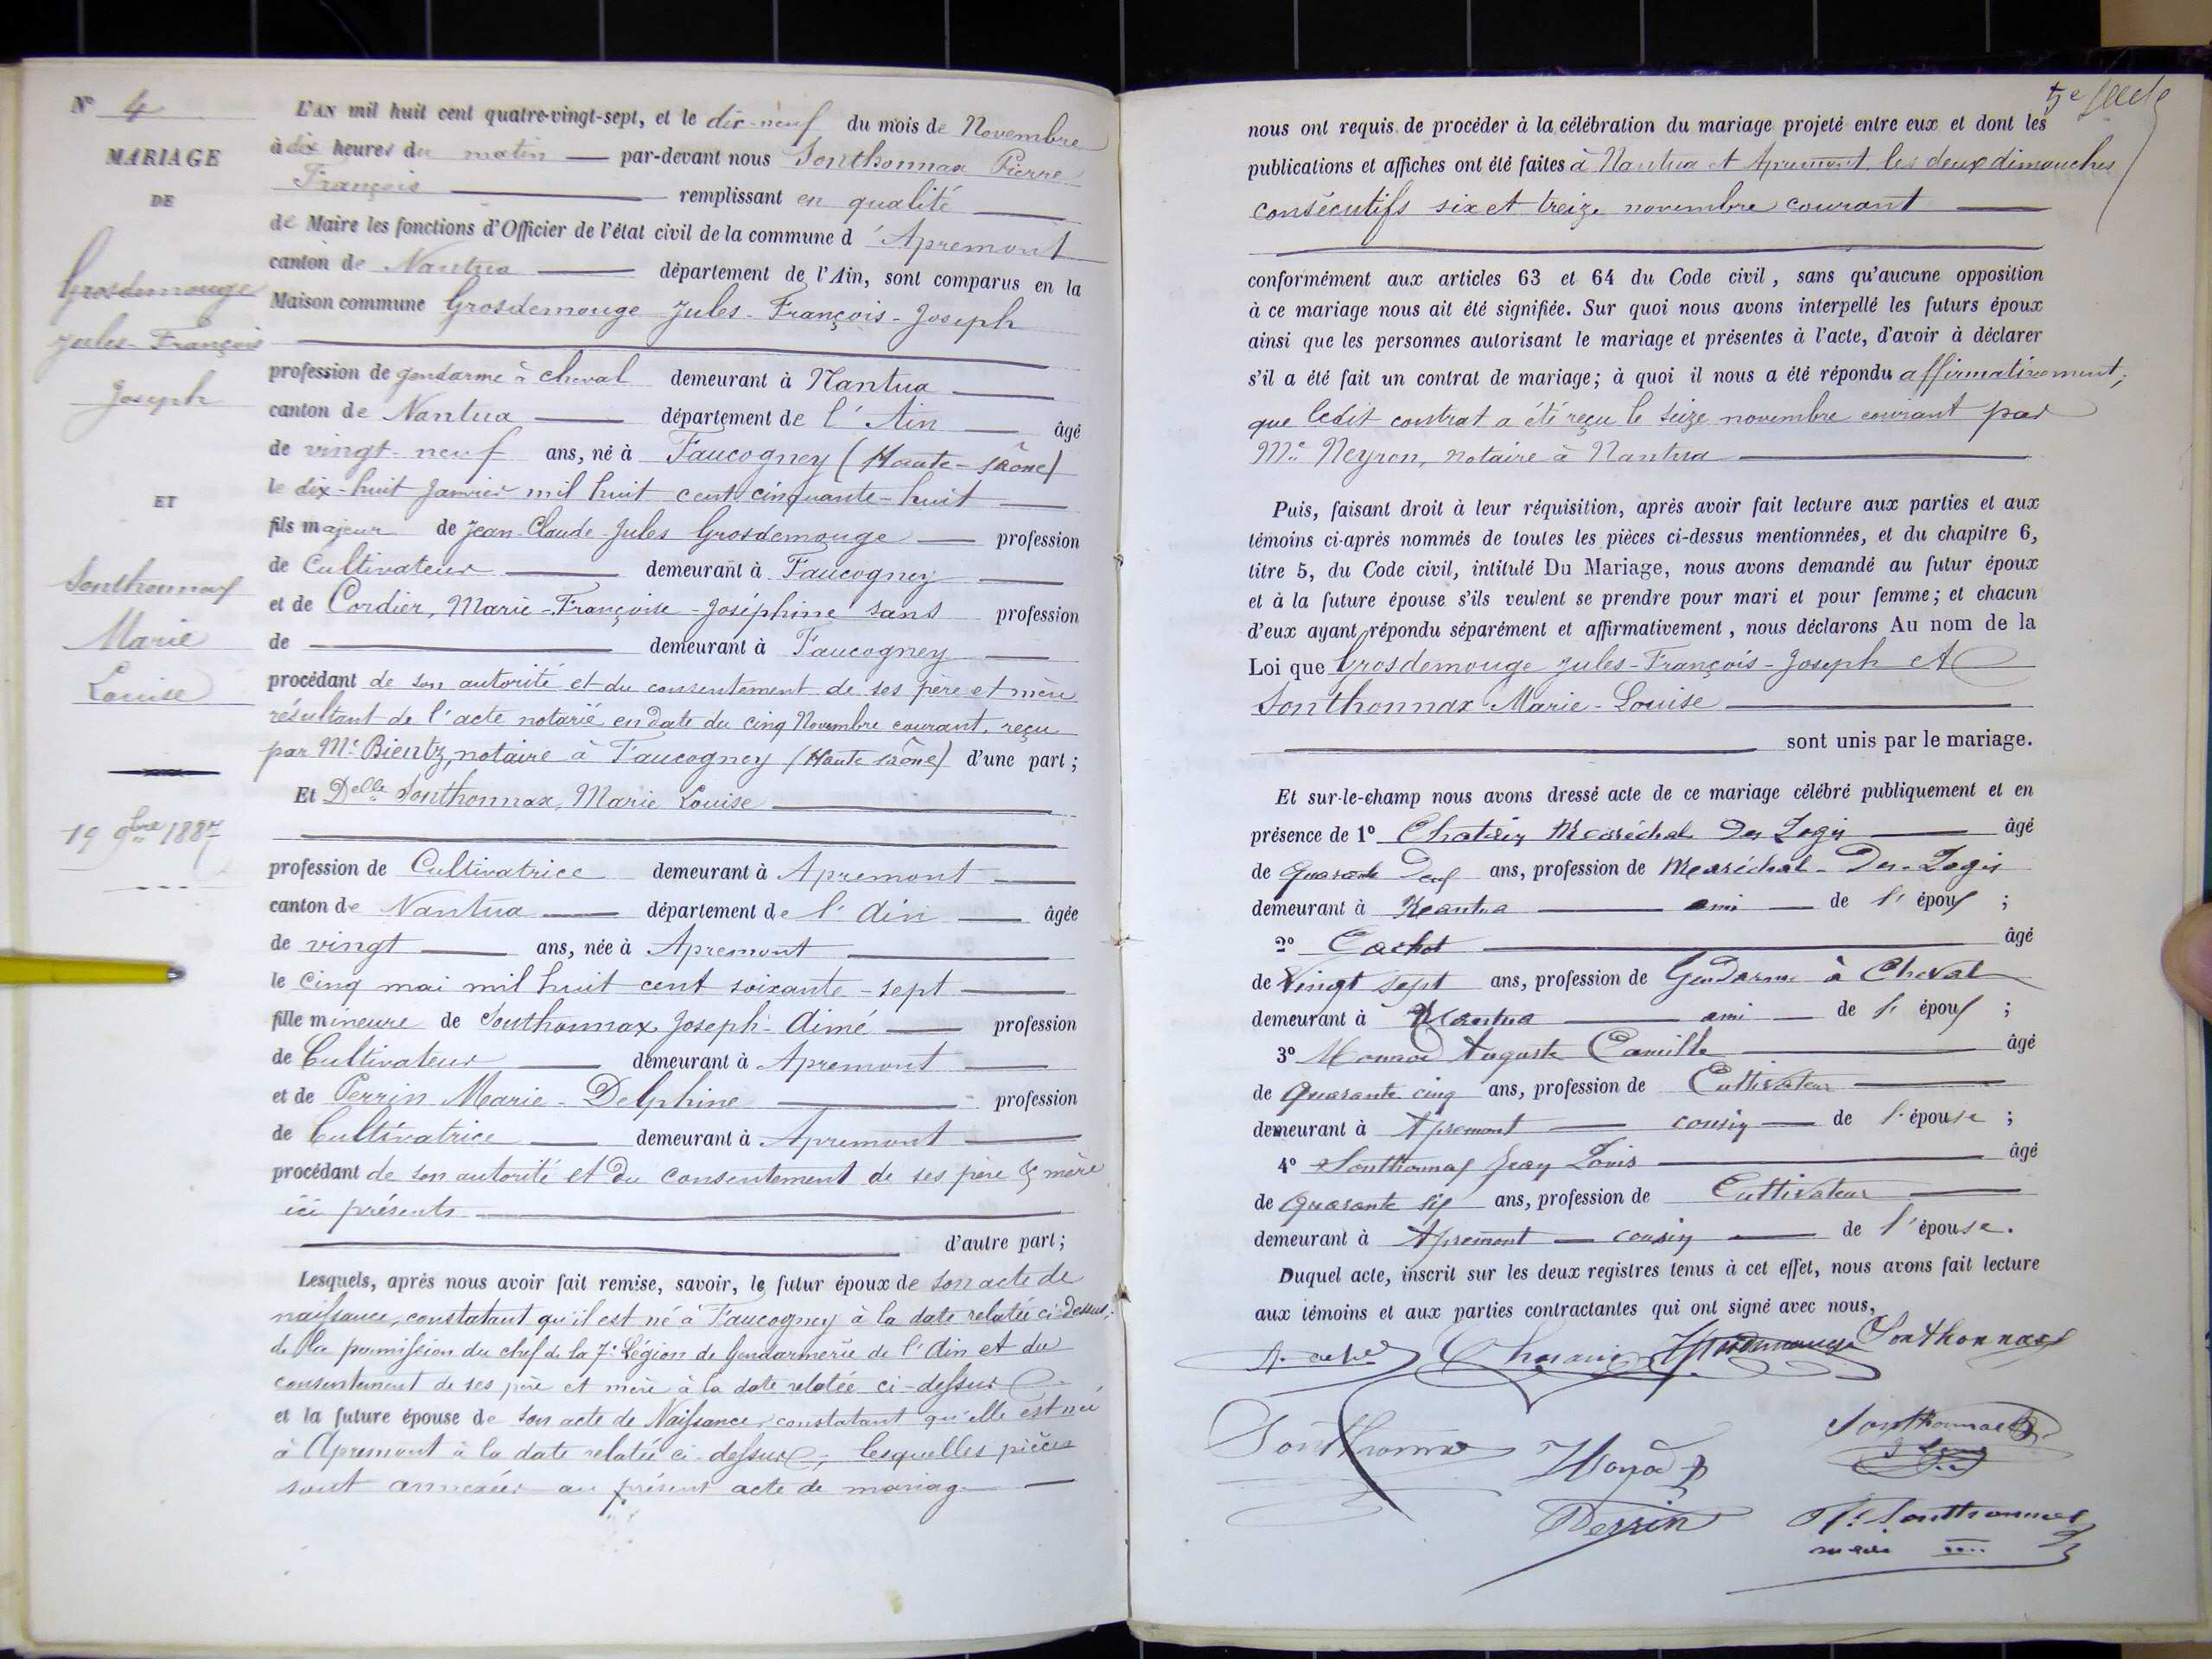 N° 4
MARIAGE
DE
Grosdemouge
Jules-François
Joseph
ET
Sonthonnax
Marie
Louise
19 9bre 1887
L'AN mil huit cent quatre-vingt-sept, et le dix-neuf du mois de Novembre
à dix heures du matin par-devant nous Sonthonnax Pierre
François remplissant en qualité
de Maire les fonctions d'Officier de l'état civil de la commune d'Apremont
canton de Nantua département de l'Ain, sont comparus en la
Maison commune Grosdemouge Jules-François-Joseph
profession de gendarme à cheval demeurant à Nantua
canton de Nantua département de l'Ain âgé
de vingt-neuf ans, né à Faucogney (Haute-Saône)
le dix-huit Janvier mil huit cent cinquante-huit
fils majeur de Jean-Claude-Jules Grosdemouge profession
de Cultivateur demeurant à Faucogney
et de Cordier, Marie-Françoise-Joséphine sans profession
de demeurant à Faucogney
procédant de son autorité et du consentement de ses père et mère
résultant de l'acte notarié en date du cinq Novembre courant, reçu
par Me Bientz, notaire à Faucogney (Haute Saône) d'une part;
Et Delle Sonthonnax, Marie Louise
profession de Cultivatrice demeurant à Apremont
canton de Nantua département de l'Ain âgée
de vingt ans, née à Apremont
le cinq mai mil huit cent soixante-sept
fille mineure de Sonthonnax Joseph-Aimé profession
de Cultivateur demeurant à Apremont
et de Perrin Marie-Delphine profession
de Cultivatrice demeurant à Apremont
procédant de son autorité et du consentement de ses père & mère
ici présents
d'autre part;
Lesquels, après nous avoir fait remise, savoir, le futur époux de son acte de
naissance, constatant qu'il est né à Faucogney à la date relatée ci-dessus;
de la permission du chef de la 7e Légion de Gendarmerie de l'Ain et du
consentement de ses père et mère à la date relatée ci-dessus
et la future épouse de son acte de Naissance, constatant qu'elle est née
à Apremont à la date relatée ci-dessus; lesquelles pièces
sont annexées au présent acte de mariage
5e
nous ont requis de procéder à la célébration du mariage projeté entre eux et dont les
publications et affiches ont été faites à Nantua et Apremont les deux dimanches
consécutifs six et treize novembre courant
conformément aux articles 63 et 64 du Code civil, sans qu'aucune opposition
à ce mariage nous ait été signifiée. Sur quoi nous avons interpellé les futurs époux
ainsi que les personnes autorisant le mariage et présentes à l'acte, d'avoir à déclarer
s'il a été fait un contrat de mariage; à quoi il nous a été répondu affirmativement;
que ledit contrat a été reçu le seize novembre courant par
Me Neyron, notaire à Nantua
Puis, faisant droit à leur réquisition, après avoir fait lecture aux parties et aux
témoins ci-après nommés de toutes les pièces ci-dessus mentionnées, et du chapitre 6,
titre 5, du Code civil, intitulé Du Mariage, nous avons demandé au futur époux
et à la future épouse s'ils veulent se prendre pour mari et pour femme; et chacun
d'eux ayant répondu séparément et affirmativement, nous déclarons Au nom de la
Loi que Grosdemouge Jules-François-Joseph et
Sonthonnax Marie-Louise
sont unis par le mariage.
Et sur-le-champ nous avons dressé acte de ce mariage célébré publiquement et en
présence de 1° Maréchal des Logis âgé
de Quarante ans, profession de Maréchal-des-Logis
demeurant à Nantua ami de l'époux;
2° Cachot âgé
de Vingt sept ans, profession de Gendarme à Cheval
demeurant à Nantua ami de l'époux;
3° Auguste Camille âgé
de Quarante cinq ans, profession de Cultivateur
demeurant à Apremont cousin de l'épouse;
4° Sonthonnax Jean Louis âgé
de Quarante six ans, profession de Cultivateur
demeurant à Apremont cousin de l'épouse.
Duquel acte, inscrit sur les deux registres tenus à cet effet, nous avons fait lecture
aux témoins et aux parties contractantes qui ont signé avec nous,
Grosdemouge Sonthonnax
Sonthonnax
Perrin
Sonthonnax